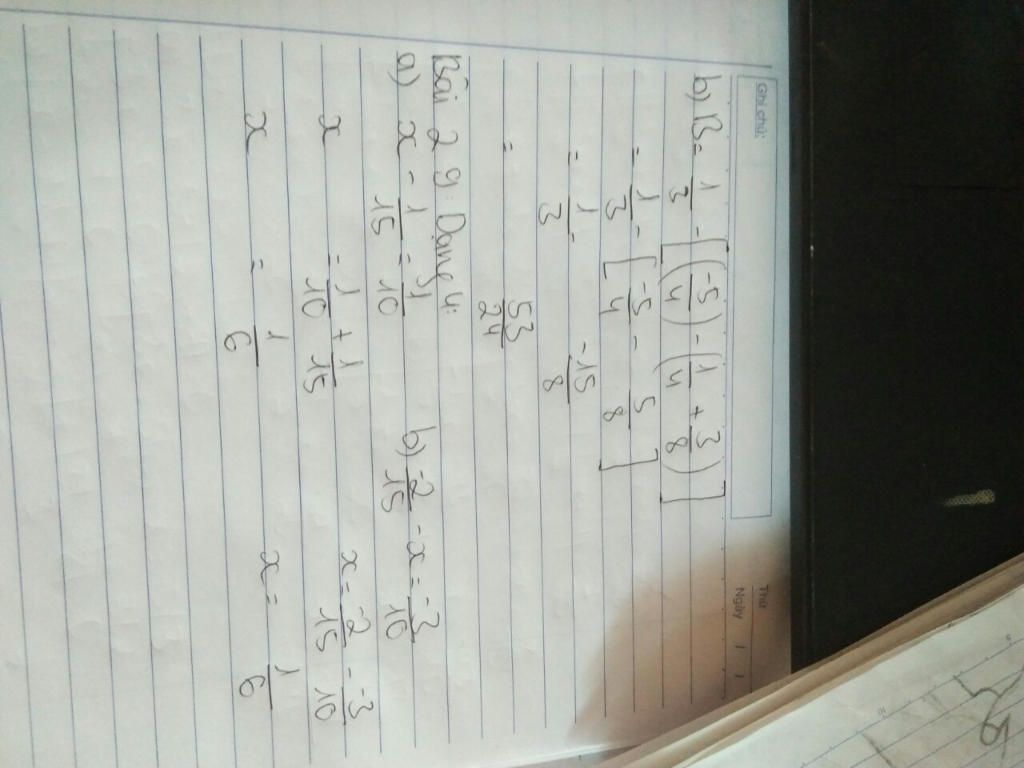 Ghi chú: Thứ
Ngày / /
b) B = 1/3 - [(-5/4) - (1/4 + 3/8)]
= 1/3 - [-5/4 - 5/8]
= 1/3 - -15/8
= 53/24
Bài 2 9: Dạng 4:
a) x - 1/15 = 1/10 b) -2/15 - x = -3/10
x = 1/10 + 1/15 x = -2/15 - -3/10
x = 1/6 x = 1/6